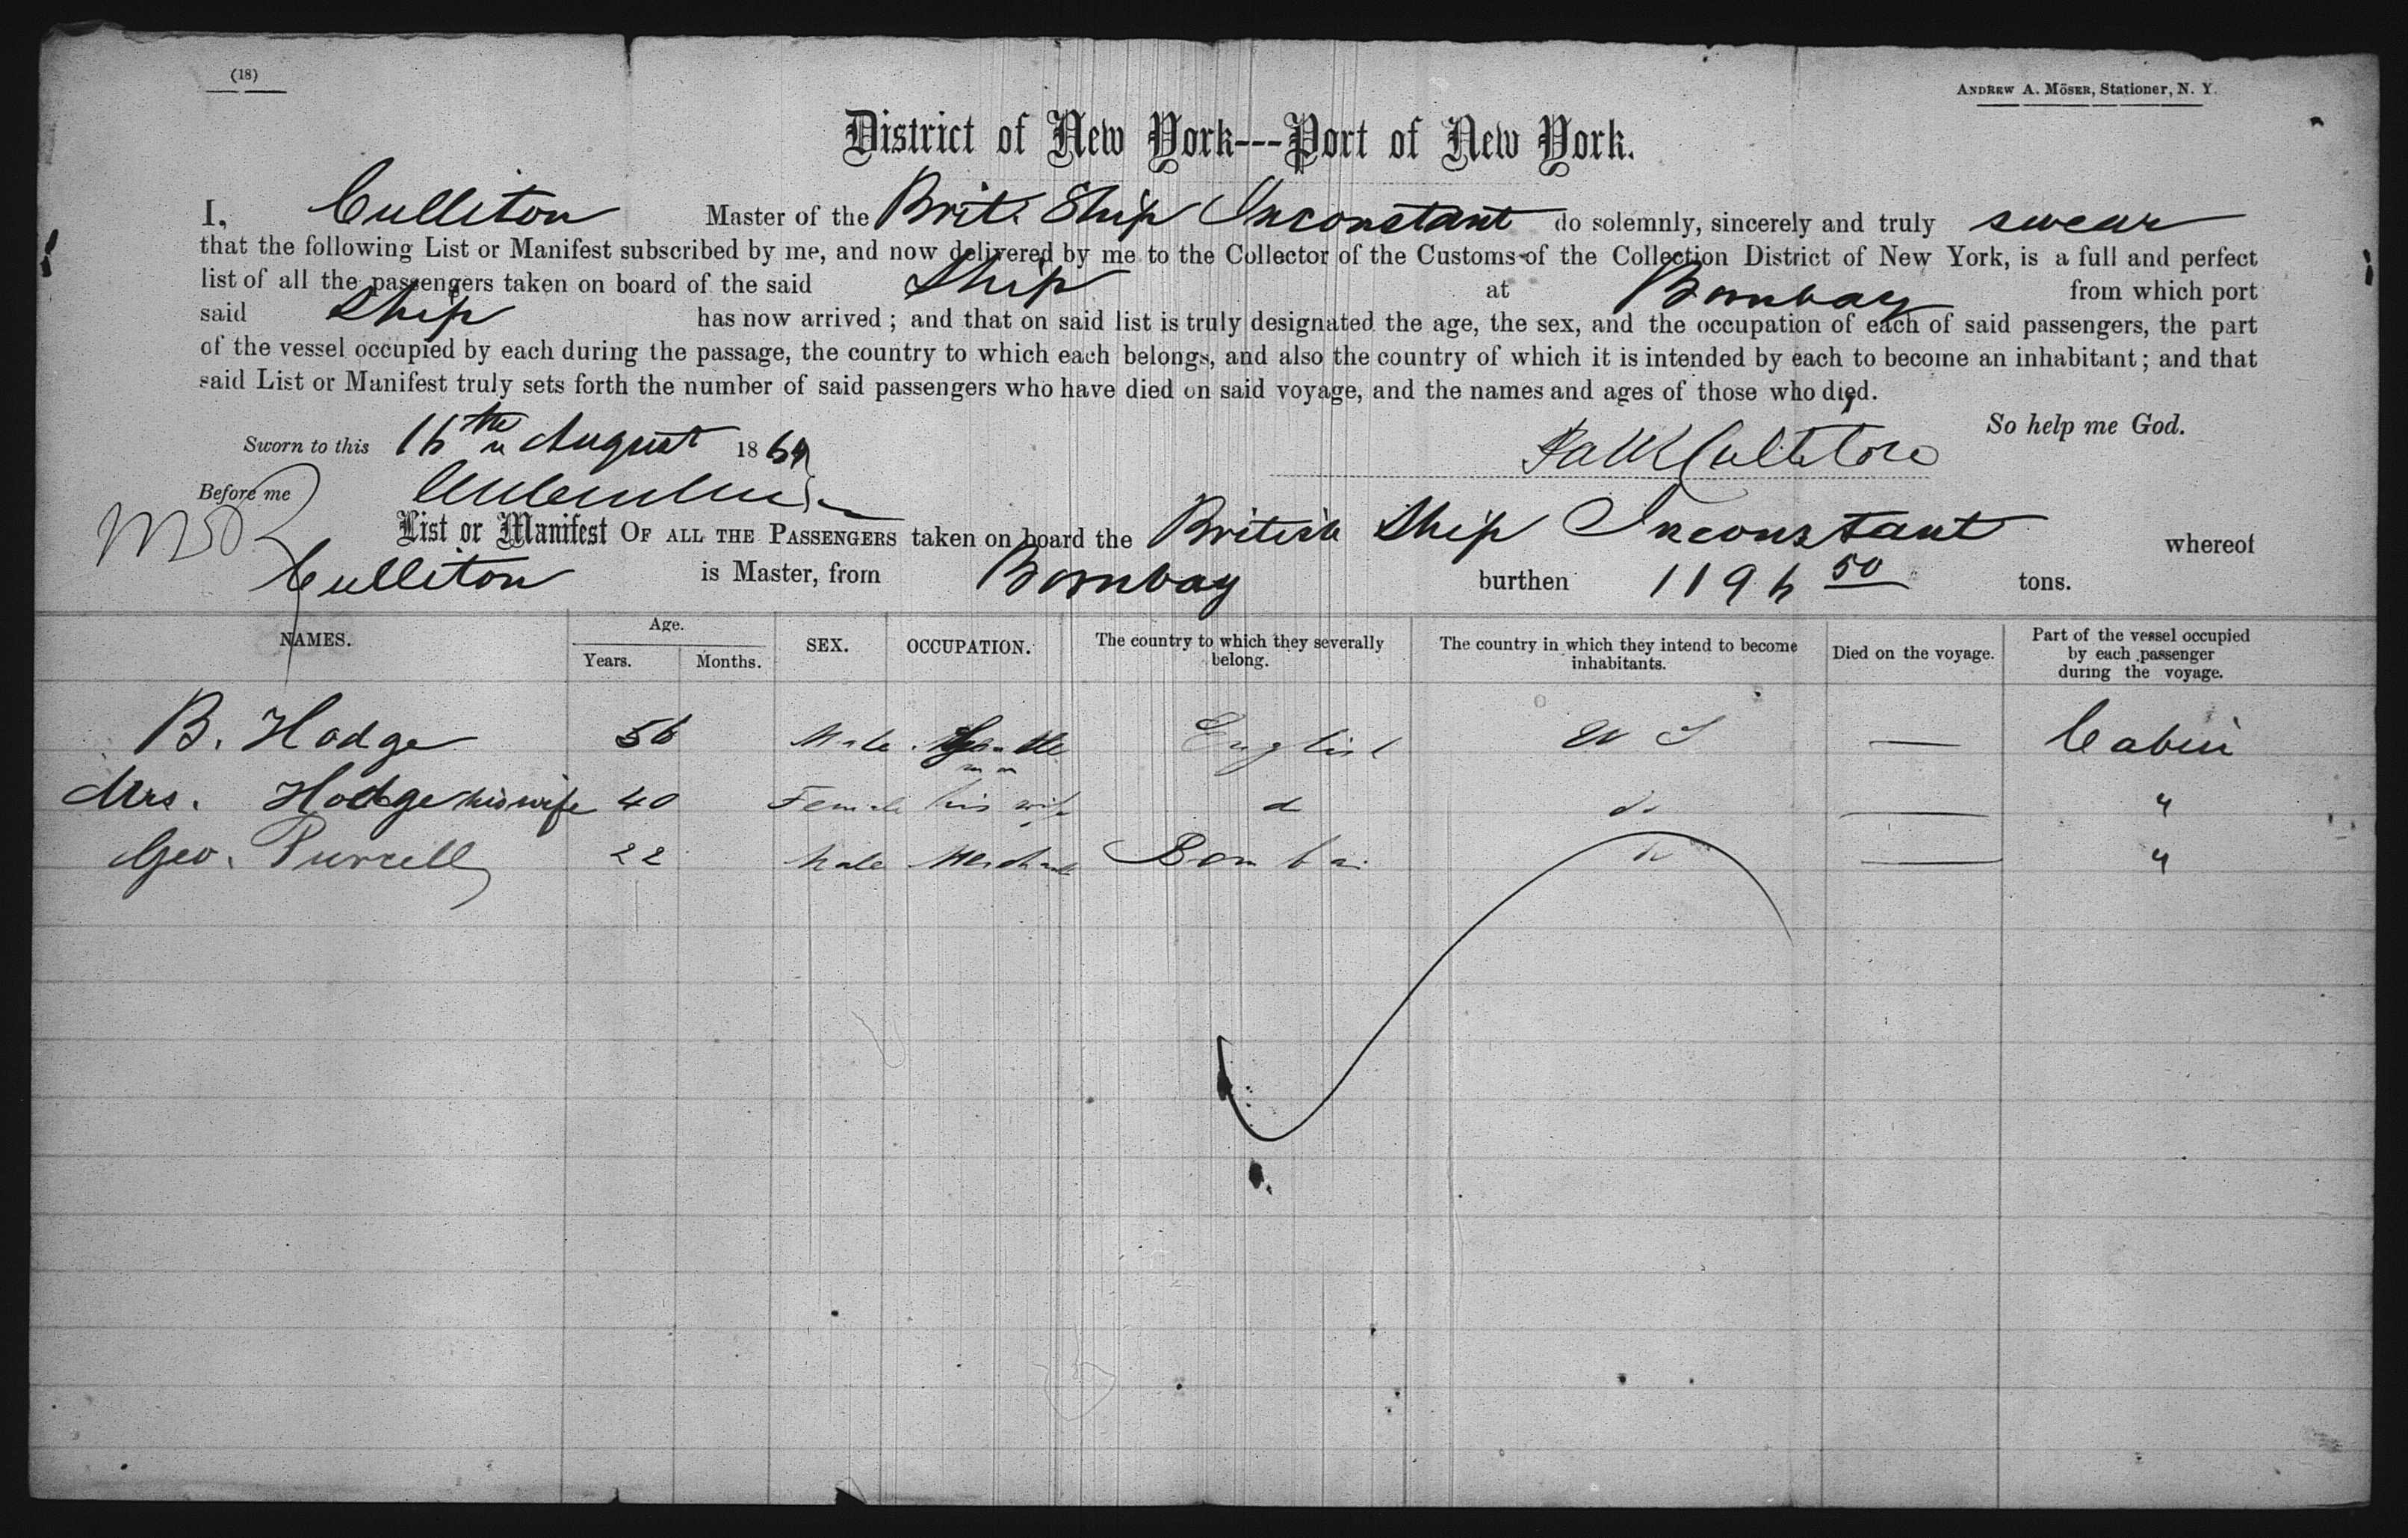 (18)
ANDREW A. MÖSER, Stationer, N. Y.
District of New York---Port of New York.
I, Culliton Master of the Brit. Ship Inconstant do solemnly, sincerely and truly swear
that the following List or Manifest subscribed by me, and now delivered by me to the Collector of the Customs of the Collection District of New York, is a full and perfect
list of all the passengers taken on board of the said Ship at Bombay from which port
said Ship has now arrived; and that on said list is truly designated the age, the sex, and the occupation of each of said passengers, the part
of the vessel occupied by each during the passage, the country to which each belongs, and also the country of which it is intended by each to become an inhabitant; and that
said List or Manifest truly sets forth the number of said passengers who have died on said voyage, and the names and ages of those who died.
So help me God.
Sworn to this 16th August 186
Before me
List or Manifest OF ALL THE PASSENGERS taken on board the British Ship Inconstant whereof
Culliton is Master, from Bombay burthen 1196 50 tons.
NAMES. Age. Years. Months. SEX. OCCUPATION. The country to which they severally belong. The country in which they intend to become inhabitants. Died on the voyage. Part of the vessel occupied by each passenger during the voyage.
B. Hodge 56 Male Gentleman English U S — Cabin
Mrs. Hodge his wife 40 Female his wife d do — "
Geo. Purcell 22 Male Merchant Bombai do — "